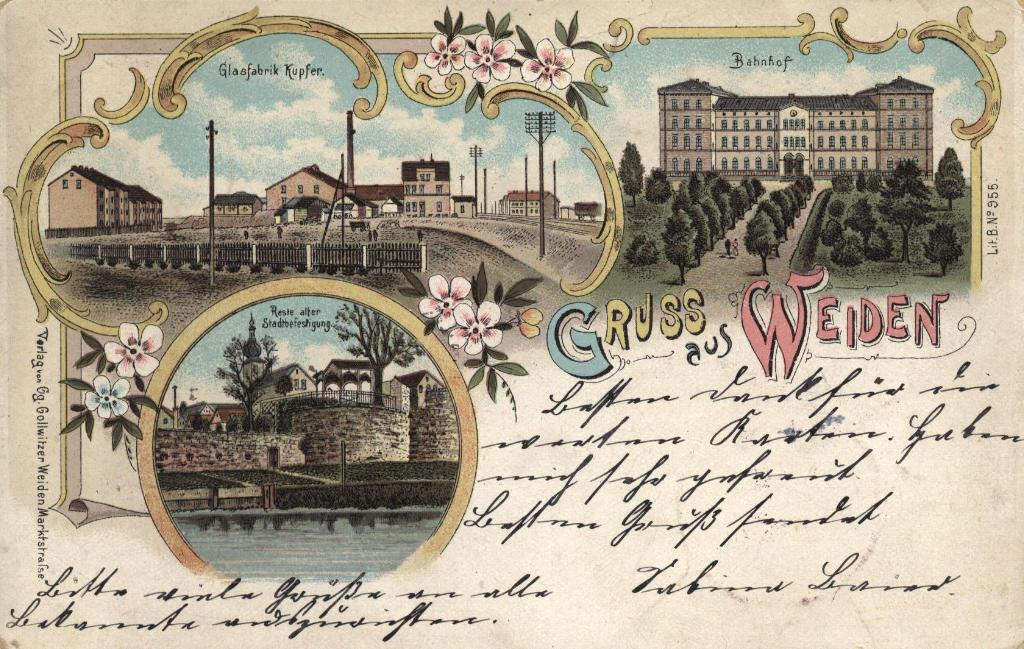 Glasfabrik Kupfer.
Bahnhof
Lit. B. Nº 956.
Reste alter
Stadtbefestigung.
GRUSS aus WEIDEN
Verlag von Gg. Gollwitzer Weiden Marktstraße
Besten Dank für die
werten Karten. Haben
mich sehr gefreut.
Besten Gruß sendet
Sabina Baier.
Bitte viele Grüße an alle
Bekannte auszurichten.